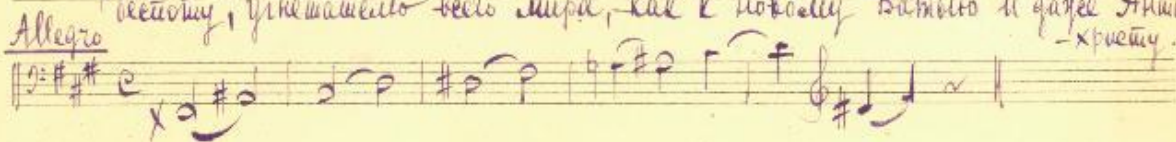 деспоту, угнетателю всего мира, как к новому Батыю и даже Анти
-христу.
Allegro